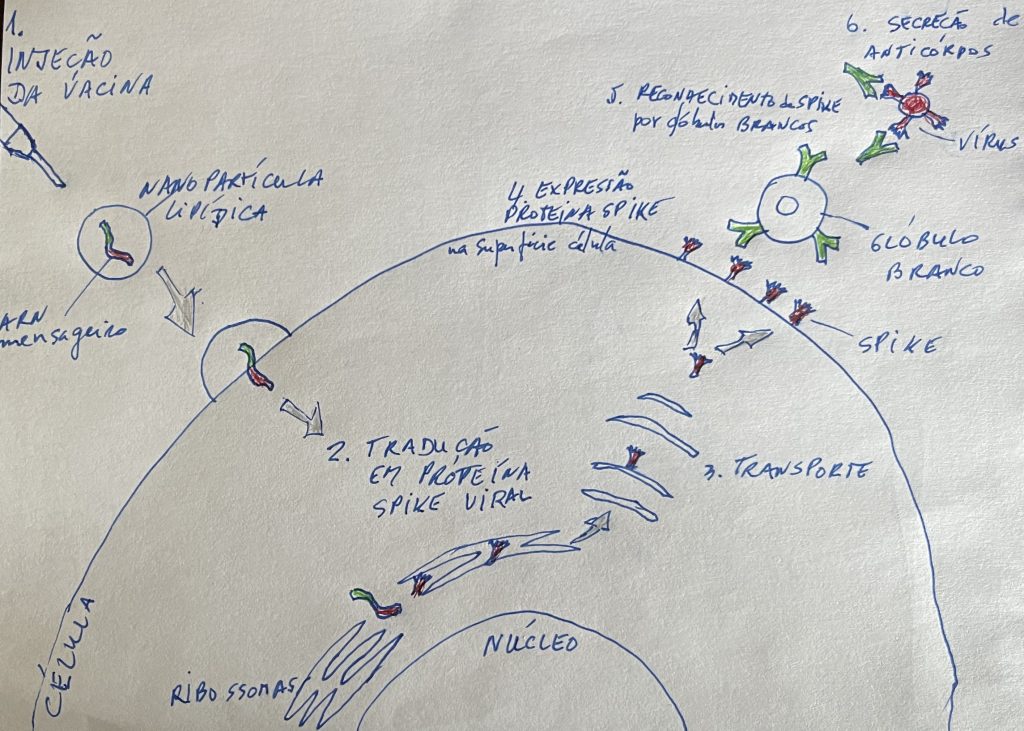 1.
INJEÇÃO
DA VACINA
NANOPARTÍCULA
LIPÍDICA
ARN
mensageiro
2. TRADUÇÃO
EM PROTEÍNA
SPIKE VIRAL
RIBOSSOMAS
CÉLULA
NÚCLEO
3. TRANSPORTE
4 EXPRESSÃO
PROTEINA SPIKE
na superfície célula
SPIKE
5. RECONHECIMENTO da SPIKE
por glóbulos BRANCOS
GLÓBULO
BRANCO
6. SECREÇÃO de
ANTICÓRPOS
VÍRUS